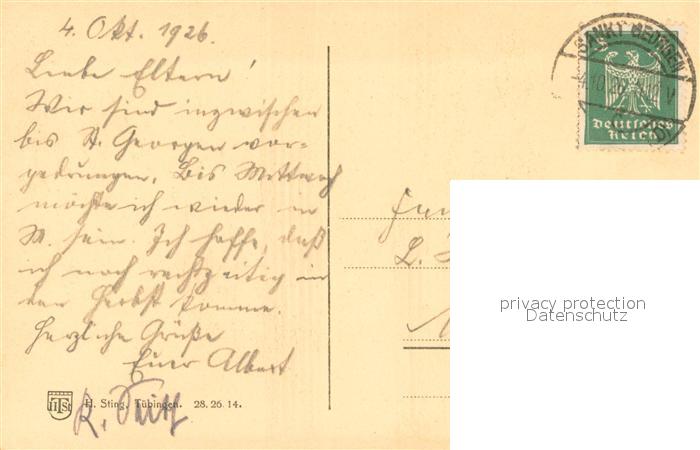 4. Okt. 1926.
Liebe Eltern!
Wir sind inzwischen
bis St. Georgen vor-
gedrungen. Bis Mittwoch
möchte ich wieder in
M. sein. Ich hoffe, daß
ich noch rechtzeitig in
den Herbst komme.
Herzliche Grüße
Euer Albert
H. Sting, Tübingen. 28. 26. 14.
SANKT GEORGEN
4.10.26
V
Deutsches
Reich
Fam
L.
privacy protection
Datenschutz